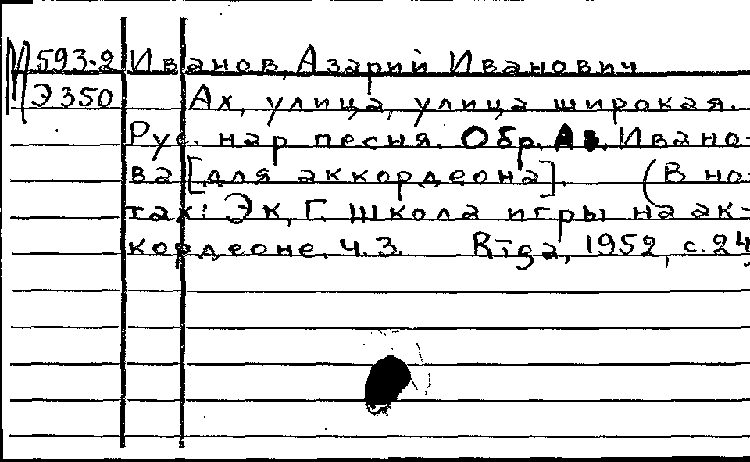 М 593-2 Иванов, Азарий Иванович
Э 350 Ах, улица, улица широкая.
Рус. нар песня. Обр. Аз. Ивано-
ва [для аккордеона]. (В но-
тах: Эк, Г. Школа игры на ак-
кордеоне. ч. 3. Rīga, 1952, с. 24